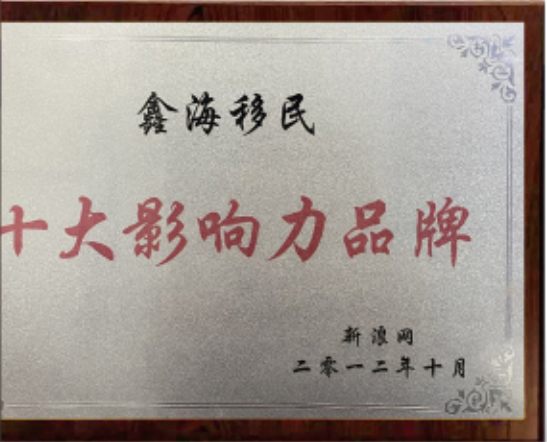 鑫海移民
十大影响力品牌
新浪网
二零一二年十月